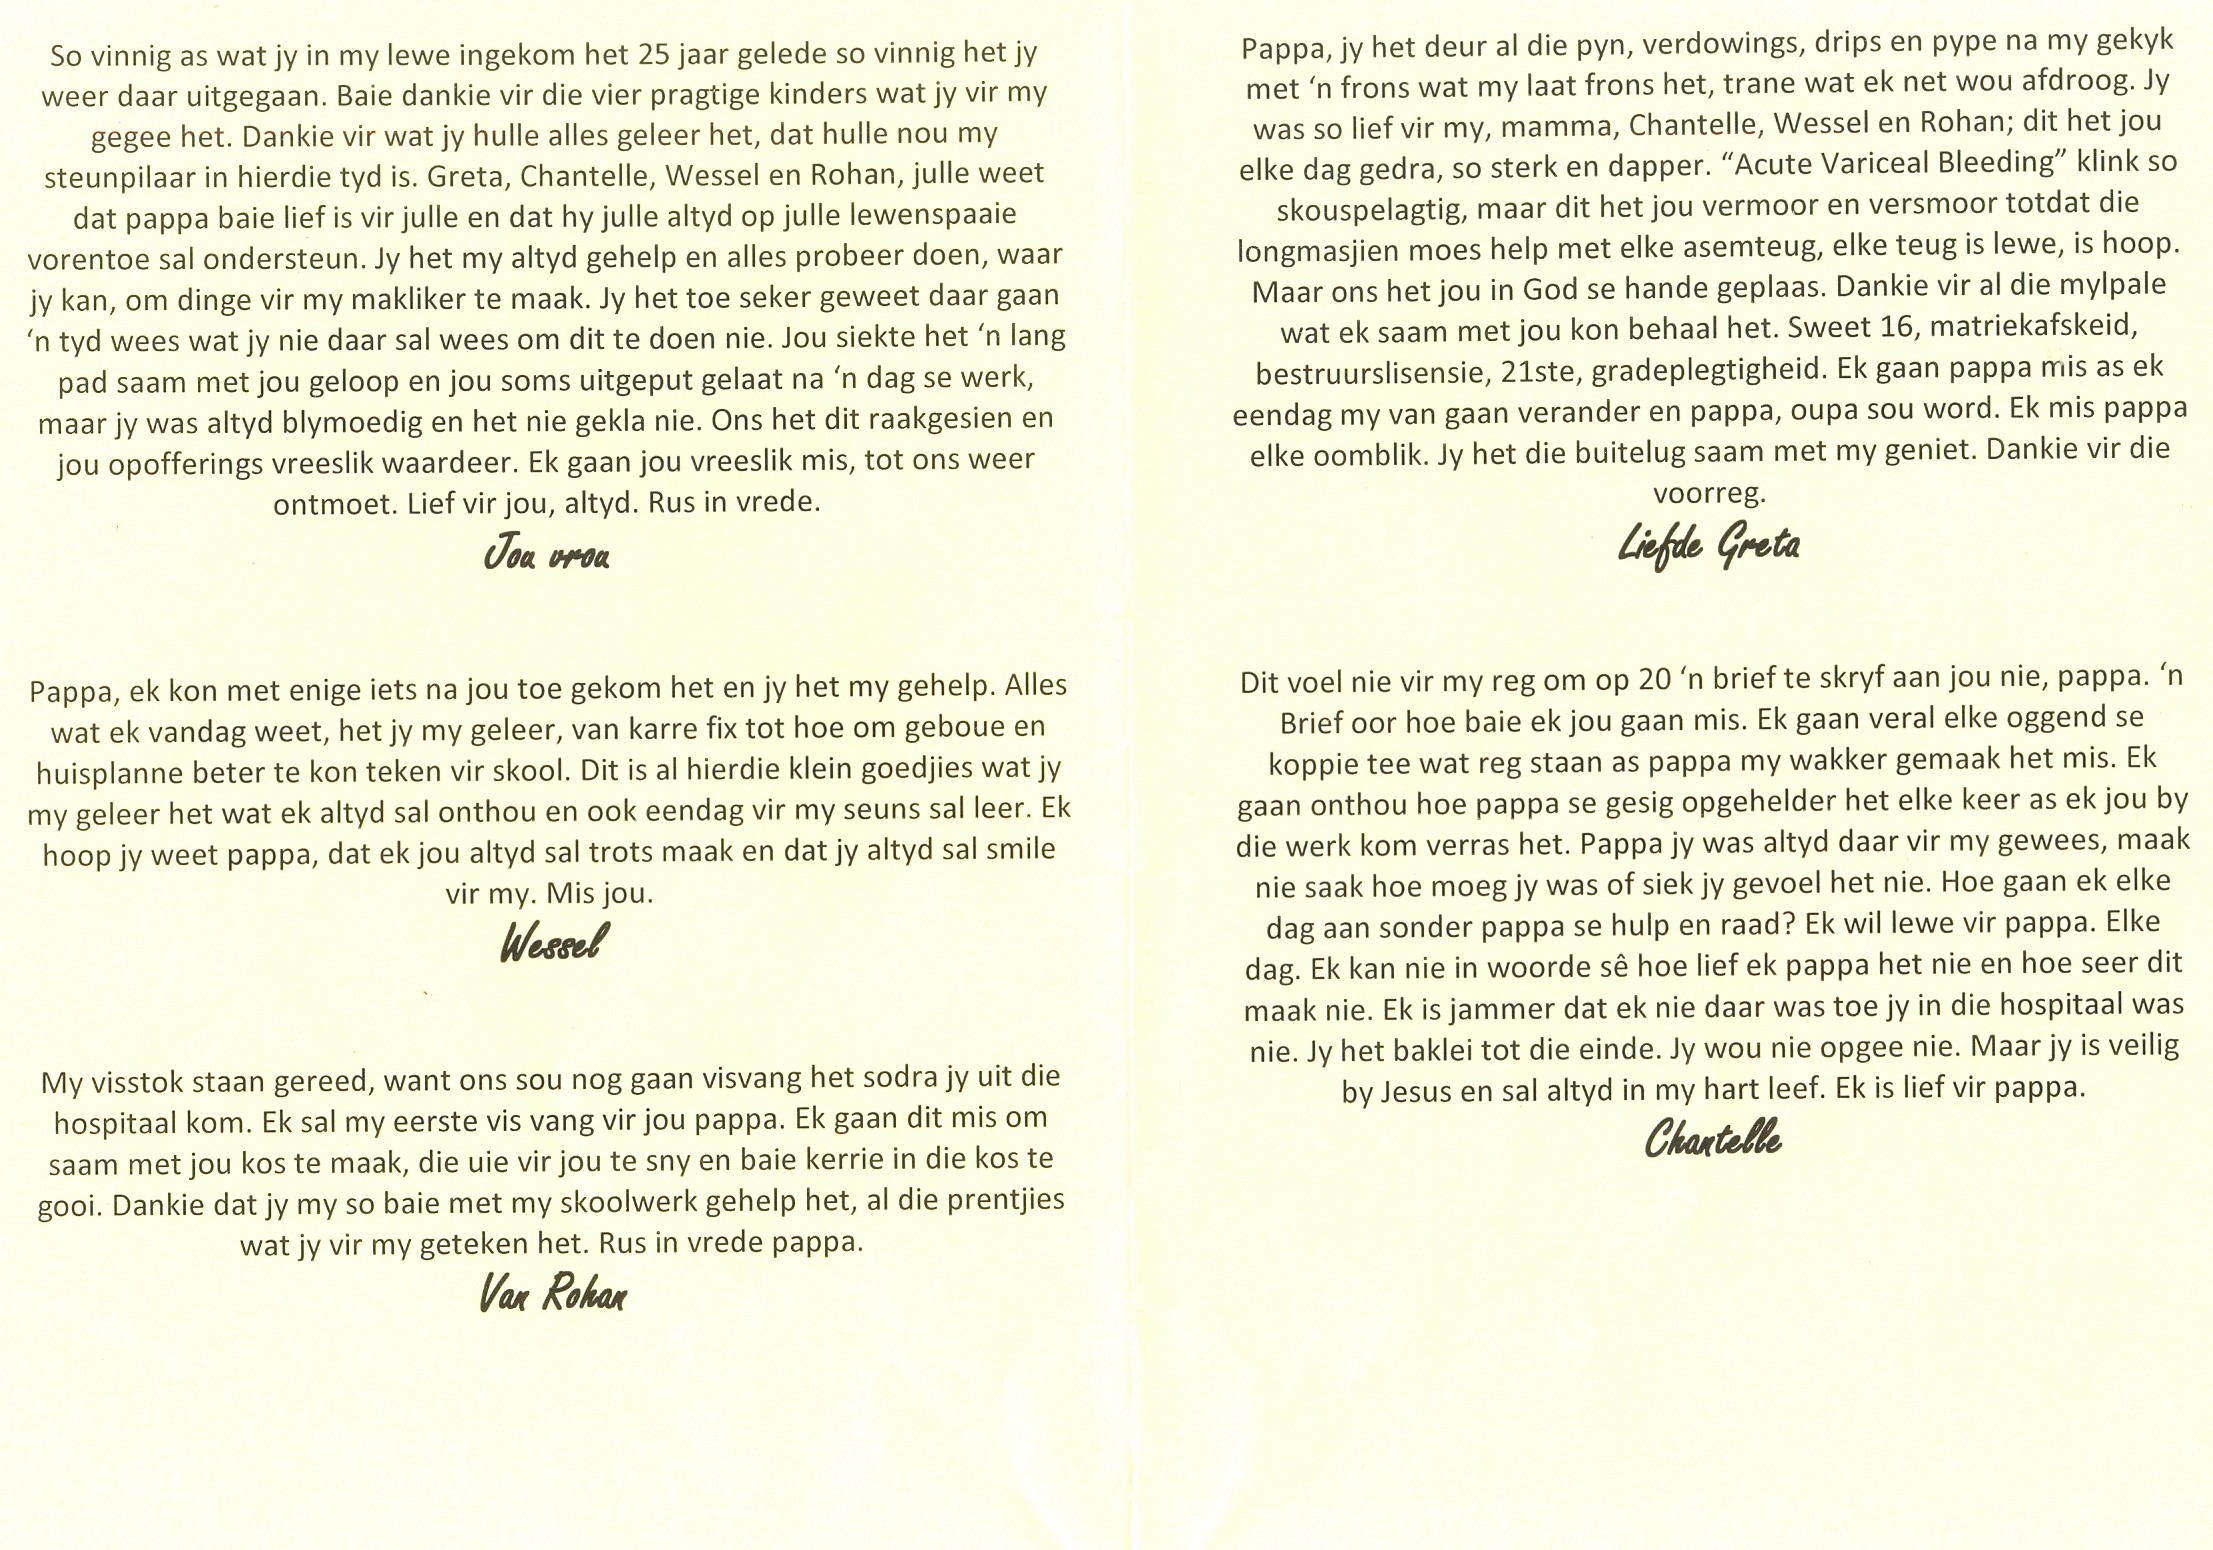 So vinnig as wat jy in my lewe ingekom het 25 jaar gelede so vinnig het jy
weer daar uitgegaan. Baie dankie vir die vier pragtige kinders wat jy vir my
gegee het. Dankie vir wat jy hulle alles geleer het, dat hulle nou my
steunpilaar in hierdie tyd is. Greta, Chantelle, Wessel en Rohan, julle weet
dat pappa baie lief is vir julle en dat hy julle altyd op julle lewenspaaie
vorentoe sal ondersteun. Jy het my altyd gehelp en alles probeer doen, waar
jy kan, om dinge vir my makliker te maak. Jy het toe seker geweet daar gaan
‘n tyd wees wat jy nie daar sal wees om dit te doen nie. Jou siekte het ‘n lang
pad saam met jou geloop en jou soms uitgeput gelaat na ‘n dag se werk,
maar jy was altyd blymoedig en het nie gekla nie. Ons het dit raakgesien en
jou opofferings vreeslik waardeer. Ek gaan jou vreeslik mis, tot ons weer
ontmoet. Lief vir jou, altyd. Rus in vrede.
Jou vrou
Pappa, ek kon met enige iets na jou toe gekom het en jy het my gehelp. Alles
wat ek vandag weet, het jy my geleer, van karre fix tot hoe om geboue en
huisplanne beter te kon teken vir skool. Dit is al hierdie klein goedjies wat jy
my geleer het wat ek altyd sal onthou en ook eendag vir my seuns sal leer. Ek
hoop jy weet pappa, dat ek jou altyd sal trots maak en dat jy altyd sal smile
vir my. Mis jou.
Wessel
My visstok staan gereed, want ons sou nog gaan visvang het sodra jy uit die
hospitaal kom. Ek sal my eerste vis vang vir jou pappa. Ek gaan dit mis om
saam met jou kos te maak, die uie vir jou te sny en baie kerrie in die kos te
gooi. Dankie dat jy my so baie met my skoolwerk gehelp het, al die prentjies
wat jy vir my geteken het. Rus in vrede pappa.
Van Rohan
Pappa, jy het deur al die pyn, verdowings, drips en pype na my gekyk
met ‘n frons wat my laat frons het, trane wat ek net wou afdroog. Jy
was so lief vir my, mamma, Chantelle, Wessel en Rohan; dit het jou
elke dag gedra, so sterk en dapper. “Acute Variceal Bleeding” klink so
skouspelagtig, maar dit het jou vermoor en versmoor totdat die
longmasjien moes help met elke asemteug, elke teug is lewe, is hoop.
Maar ons het jou in God se hande geplaas. Dankie vir al die mylpale
wat ek saam met jou kon behaal het. Sweet 16, matriekafskeid,
bestruurslisensie, 21ste, gradeplegtigheid. Ek gaan pappa mis as ek
eendag my van gaan verander en pappa, oupa sou word. Ek mis pappa
elke oomblik. Jy het die buitelug saam met my geniet. Dankie vir die
voorreg.
Liefde Greta
Dit voel nie vir my reg om op 20 ‘n brief te skryf aan jou nie, pappa. ‘n
Brief oor hoe baie ek jou gaan mis. Ek gaan veral elke oggend se
koppie tee wat reg staan as pappa my wakker gemaak het mis. Ek
gaan onthou hoe pappa se gesig opgehelder het elke keer as ek jou by
die werk kom verras het. Pappa jy was altyd daar vir my gewees, maak
nie saak hoe moeg jy was of siek jy gevoel het nie. Hoe gaan ek elke
dag aan sonder pappa se hulp en raad? Ek wil lewe vir pappa. Elke
dag. Ek kan nie in woorde sê hoe lief ek pappa het nie en hoe seer dit
maak nie. Ek is jammer dat ek nie daar was toe jy in die hospitaal was
nie. Jy het baklei tot die einde. Jy wou nie opgee nie. Maar jy is veilig
by Jesus en sal altyd in my hart leef. Ek is lief vir pappa.
Chantelle